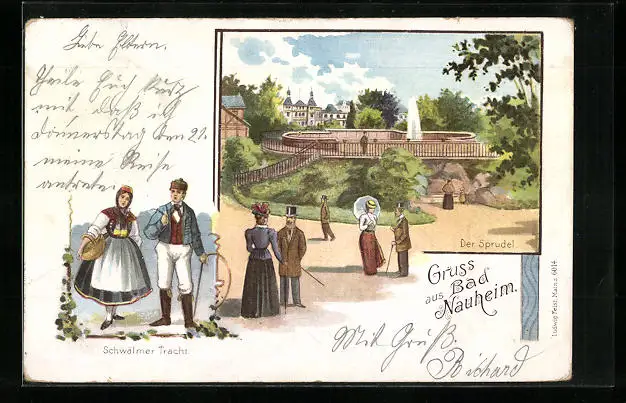 Liebe Eltern,
Theile Euch kurz
mit daß ich
Donnerstag den 21.
meine Reise
antrete.
Der Sprudel.
Gruss
aus Bad
Nauheim.
Schwälmer Tracht.
Mit Gruß.
Richard
Ludwig Feist, Mainz 6014